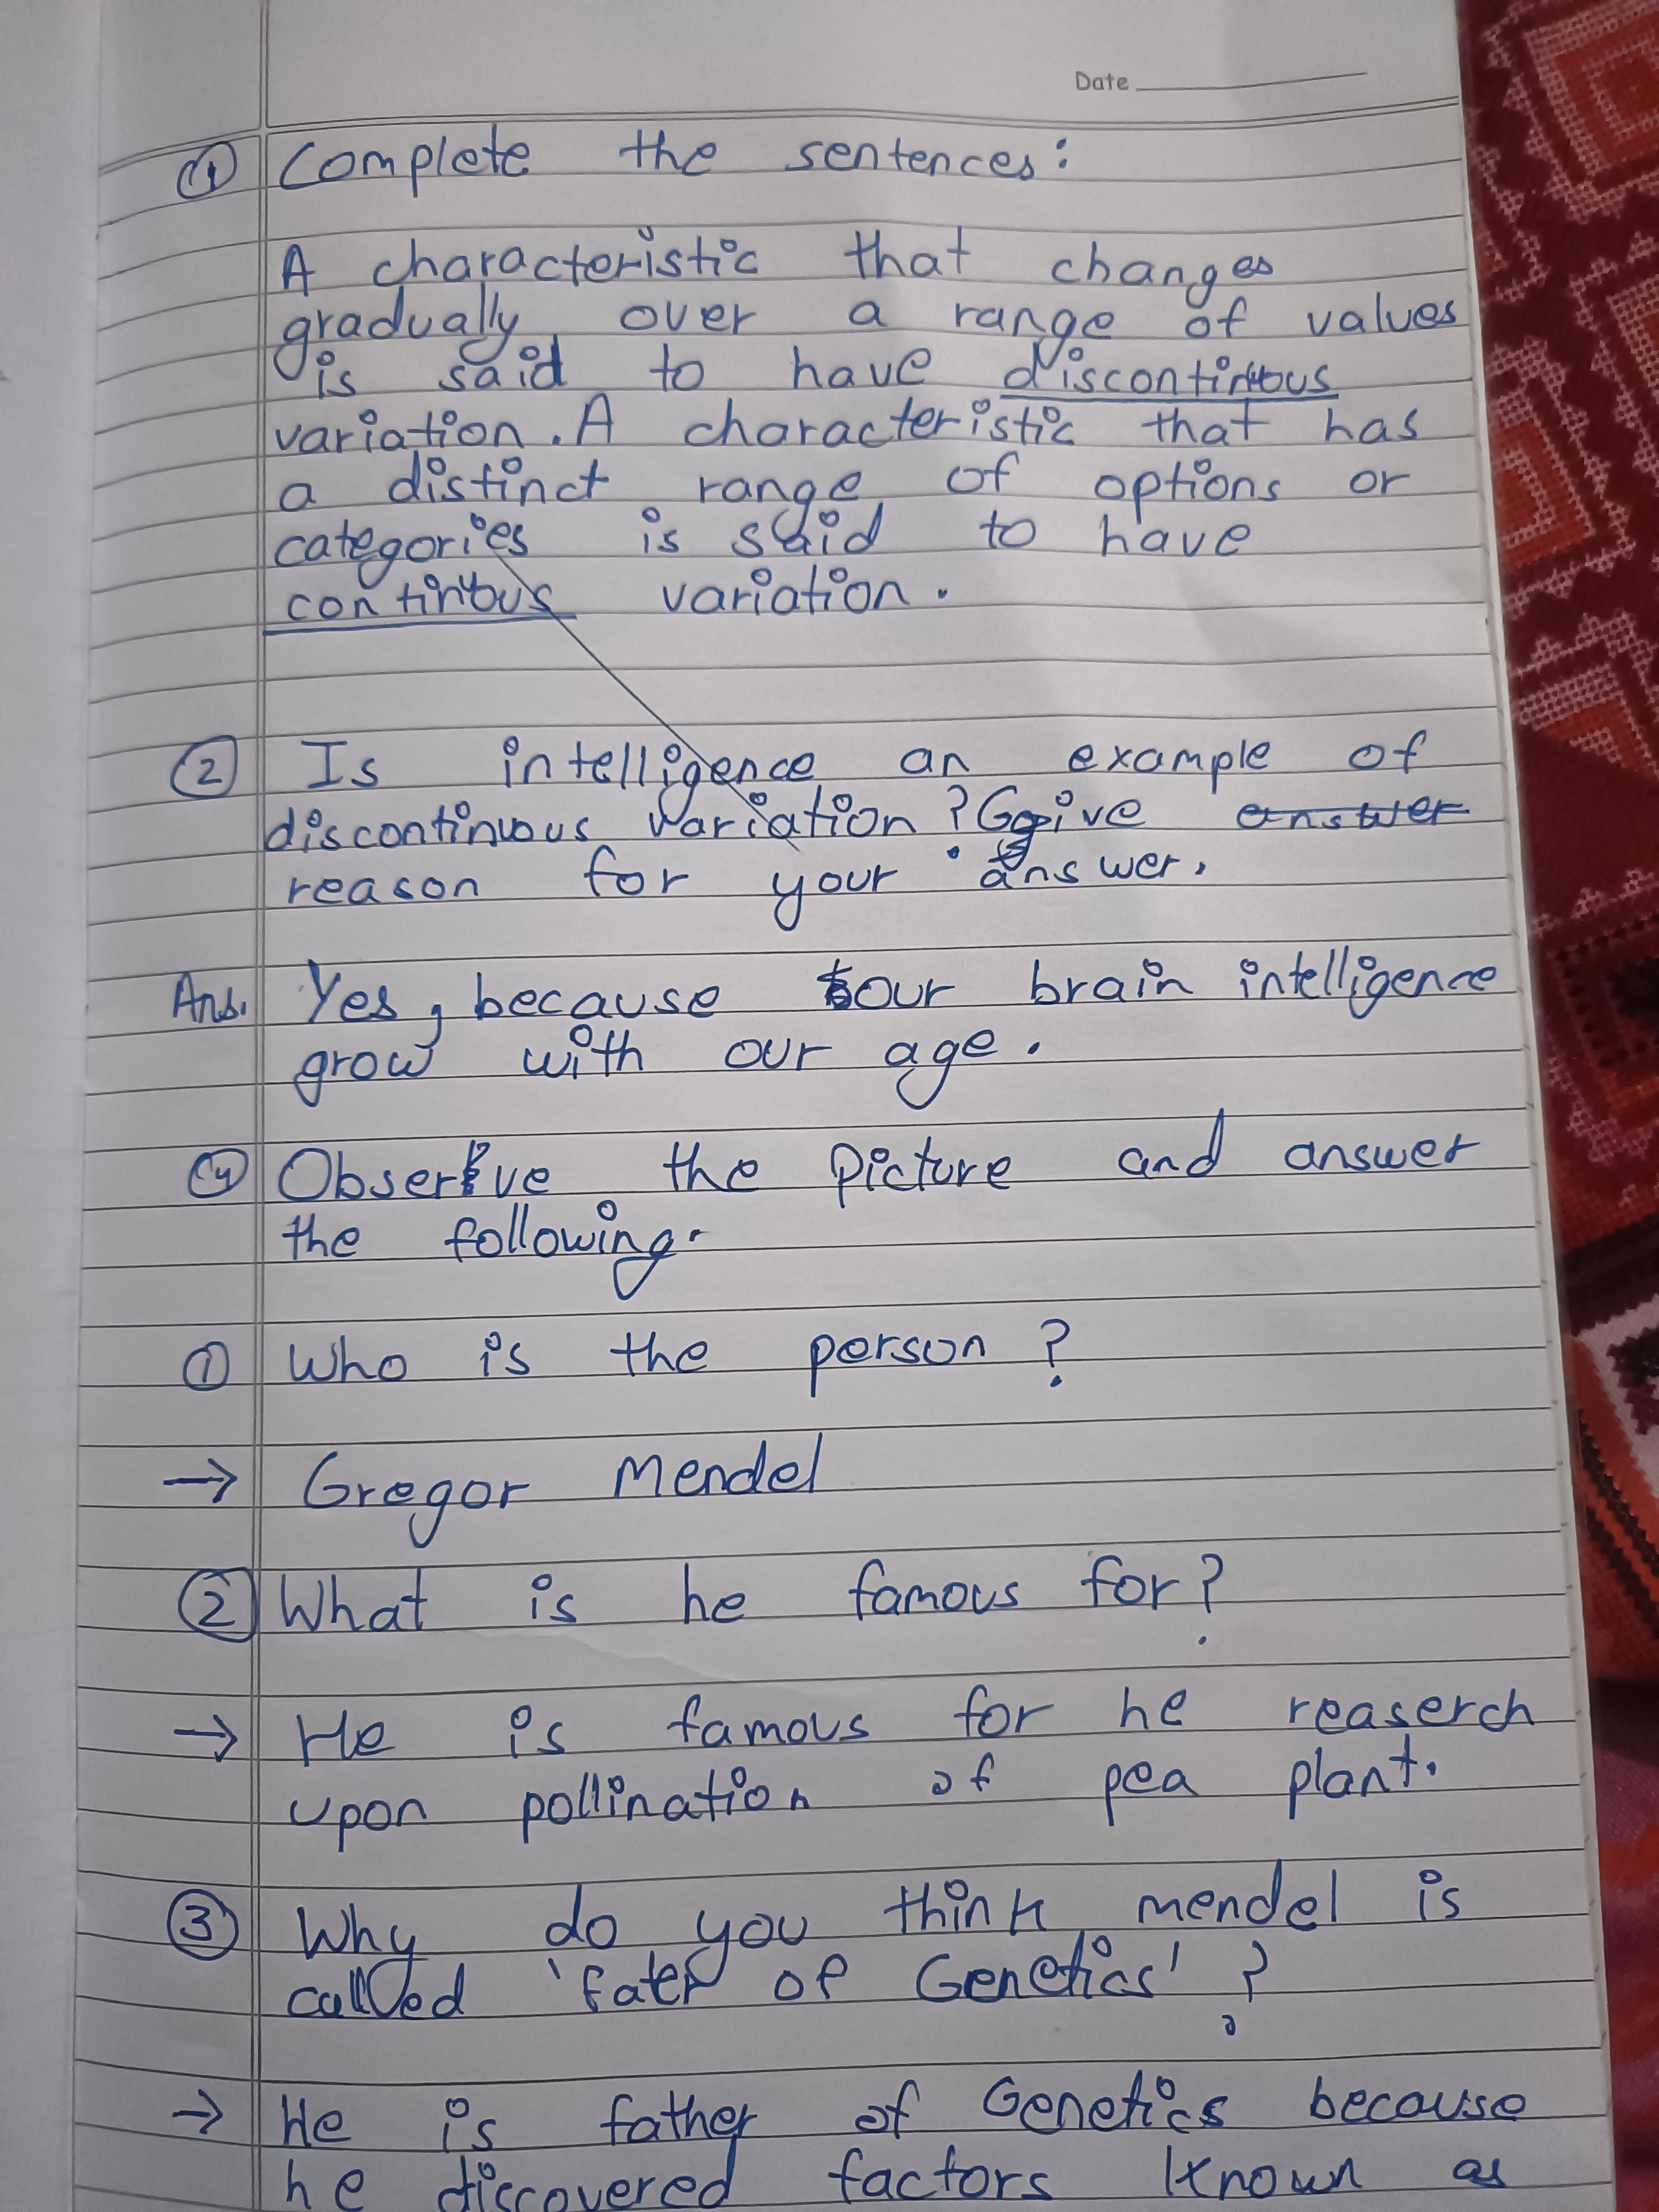 Date
① Complete the sentences:
A characteristic that changes
gradually over a range of values
is said to have discontinuous
variation. A characteristic that has
a distinct range of options or
categories is said to have
continuous variation.
② Is intelligence an example of
discontinuous variation? Give answer
reason for your answer.
Ans. Yes, because our brain intelligence
grow with our age.
Observe the Picture and answer
the following.
① Who is the person?
→ Gregor Mendel
② What is he famous for?
→ He is famous for he reaserch
upon pollination of pea plant.
③ Why do you think mendel is
called 'fater of Genetics'?
→ He is father of Genetics because
he discovered factors known as